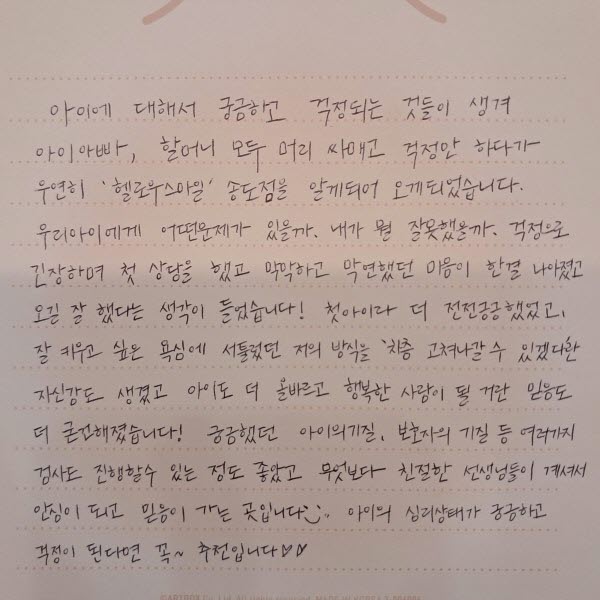 아이에 대해서 궁금하고 걱정되는 것들이 생겨
아이아빠, 할머니 모두 머리 싸매고 걱정만 하다가
우연히 '헬로우스마일' 송도점을 알게되어 오게되었습니다.
우리아이에게 어떤문제가 있을까. 내가 뭘 잘못했을까. 걱정으로
긴장하며 첫 상담을 했고 막막하고 막연했던 마음이 한결 나아졌고
오길 잘 했다는 생각이 들었습니다! 첫아이라 더 전전긍긍했었고,
잘 키우고 싶은 욕심에 서툴렀던 저의 방식을 차츰 고쳐나갈 수 있겠다란
자신감도 생겼고 아이도 더 올바르고 행복한 사람이 될 거란 믿음도
더 굳건해졌습니다! 궁금했던 아이의기질, 보호자의 기질 등 여러가지
검사도 진행할수 있는 점도 좋았고 무엇보다 친절한 선생님들이 계셔서
안심이 되고 믿음이 가는 곳입니다 아이의 심리상태가 궁금하고
걱정이 된다면 꼭~ 추천입니다♡♡
©ARTBOX Co., Ltd. All rights reserved. MADE IN KOREA